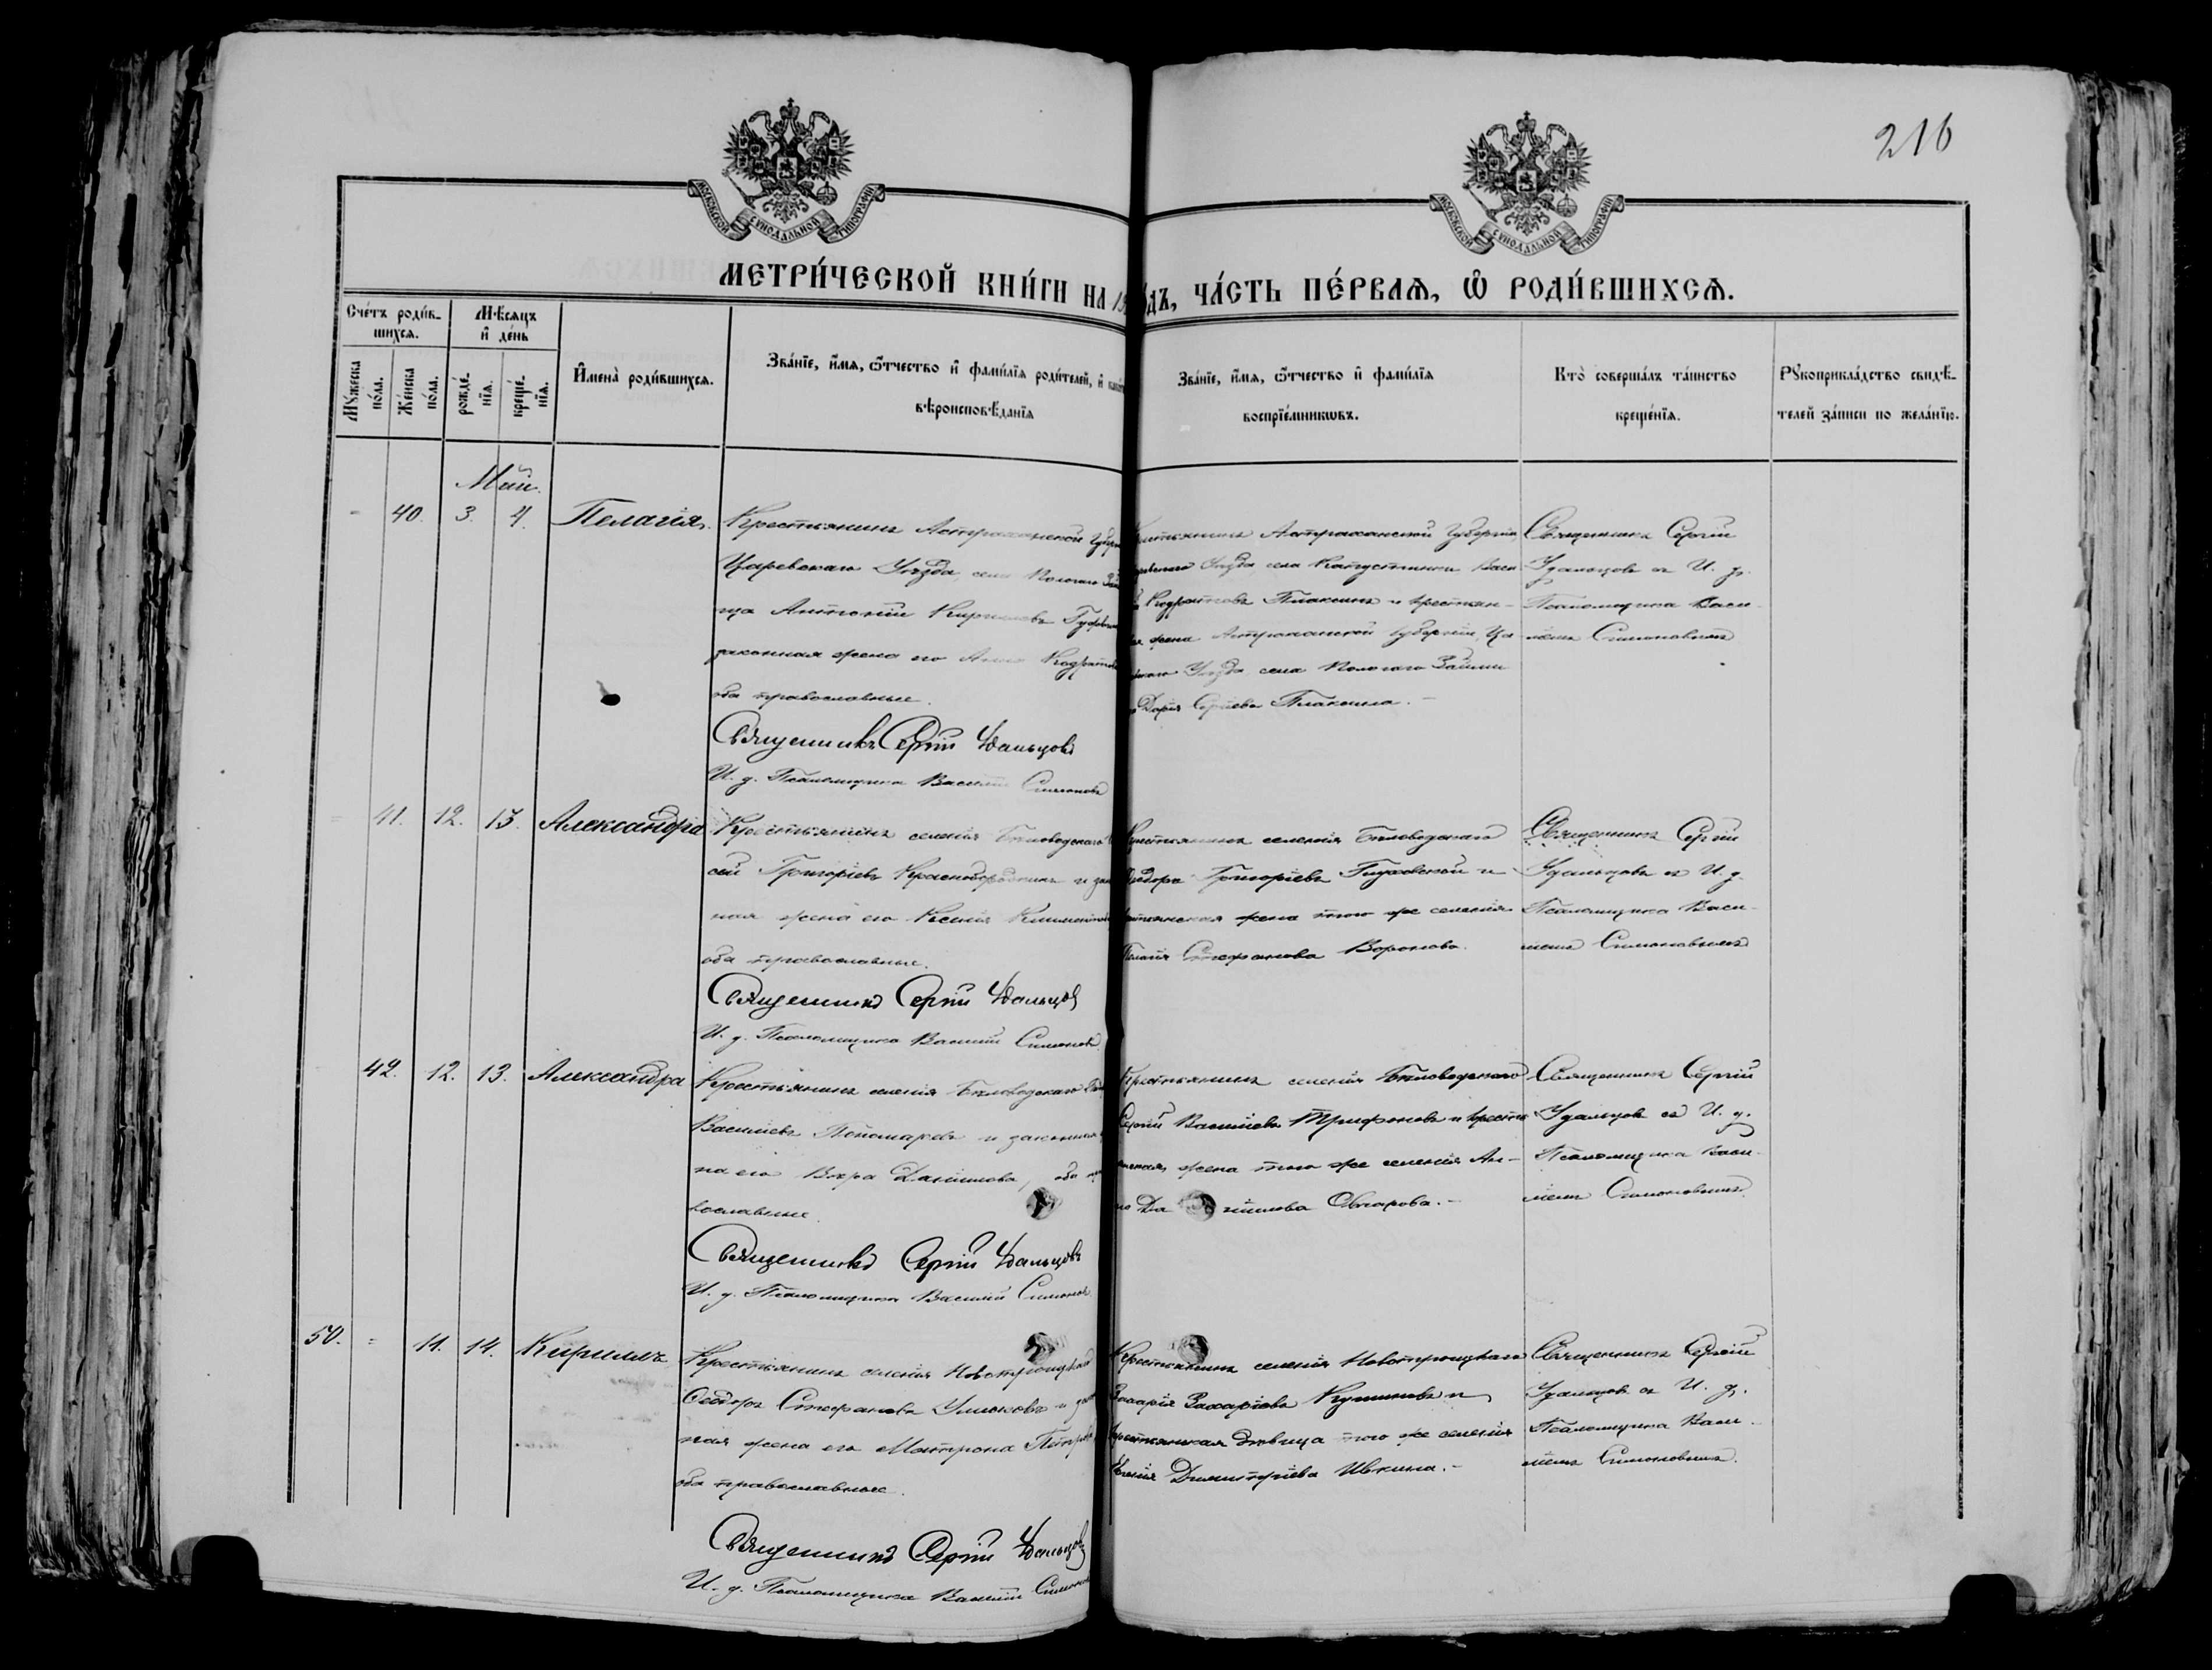 216
МОСКОВСКОЙ СѴНОДАЛЬНОЙ ТИПОГРАФІИ
МОСКОВСКОЙ СѴНОДАЛЬНОЙ ТИПОГРАФІИ
МЕТРИ́ЧЕСКОЙ КНИ́ГИ НА
ДЪ, ЧА́СТЬ ПЕ́РВАѦ, Ѡ РОДИ́ВШИХСѦ.
Сче́тъ роди́в-
шихсѧ.
Мꙋ́жеска
по́ла.
Же́нска
по́ла.
Мѣ́сѧцъ
и҆ де́нь
рожде́-
нїѧ.
креще́-
нїѧ.
И҆мена̀ роди́вшихсѧ.
Зва́нїе, и҆́мѧ, ѻ҆́тчество и҆ фами́лїѧ роди́телей, и҆
вѣроисповѣ́данїѧ
Зва́нїе, и҆́мѧ, ѻ҆́тчество и҆ фами́лїѧ
воспрїе́мникѡвъ.
Кто̀ соверша́лъ та́инство
креще́нїѧ.
Рꙋкоприкла́дство свидѣ́-
телей за́писи по жела́нїю.
Май.
40. 3. 4. Пелагія.
Крестьянинъ Астраханской Губер
Царевскаго Уѣзда, села Пологаго Зай
ща Антоній Кириловъ
законная жена его Анна Кодратов
оба православные.
Священникъ Сергій Удальцовъ
И. д. Псаломщика Василій Симоновъ
Крестьянинъ Астраханской Губерніи
Уѣзда села Капустинки Васи
Кодратовъ Плаксинъ и крестьян-
жена Астраханской Губерніи, Ца-
Уѣзда, села Пологаго Займи
Дарія Сергіева Плаксина. —
Священникъ Сергій
Удальцовъ съ И. д.
Псаломщика Васи-
ліемъ Симоновымъ
41. 12. 13. Александра
Крестьянинъ селенія Бѣловодскаго
сей Григорьевъ и зак
ная жена его Ксенія Климентов
оба православные.
Священникъ Сергій Удальцов
И. д. Псаломщика Василій Симонов
Крестьянинъ селенія Бѣловодскаго
Ѳедоръ Григорьевъ Глуховской и
крестьянская жена того же селенія
Пелагія Стефанова Воронова.
Священникъ Сергій
Удальцовъ съ И. д.
Псаломщика Васи-
ліемъ Симоновымъ
42. 12. 13. Александра
Крестьянинъ селенія Бѣловодскаго
Васильевъ Пономаревъ и законная
на его Вѣра Данилова, оба пра
вославные.
Священникъ Сергій Удальцовъ
И. д. Псаломщика Василій Симонов
Крестьянинъ селенія Бѣловодскаго
Сергій Васильевъ Трифоновъ и крестья
нская жена того же селенія Ан-
на Да ніилова Овчарова. —
Священникъ Сергій
Удальцовъ съ И. д.
Псаломщика Васи-
ліемъ Симоновымъ.
50. = 11. 14. Кириллъ
Крестьянинъ селенія Новотроицкаго
Ѳедоръ Стефановъ и зак
ная жена его Матрона Петров
оба православные.
Священникъ Сергій Удальцовъ
И. д. Псаломщика Василій Симонов
Крестьянинъ селенія Новотроицкаго
Захарія Захаріевъ и
крестьянская дѣвица того же селенія
Димитріева Ивкина. —
Священникъ Сергій
Удальцовъ съ И. д.
Псаломщика Васи-
ліемъ Симоновымъ.